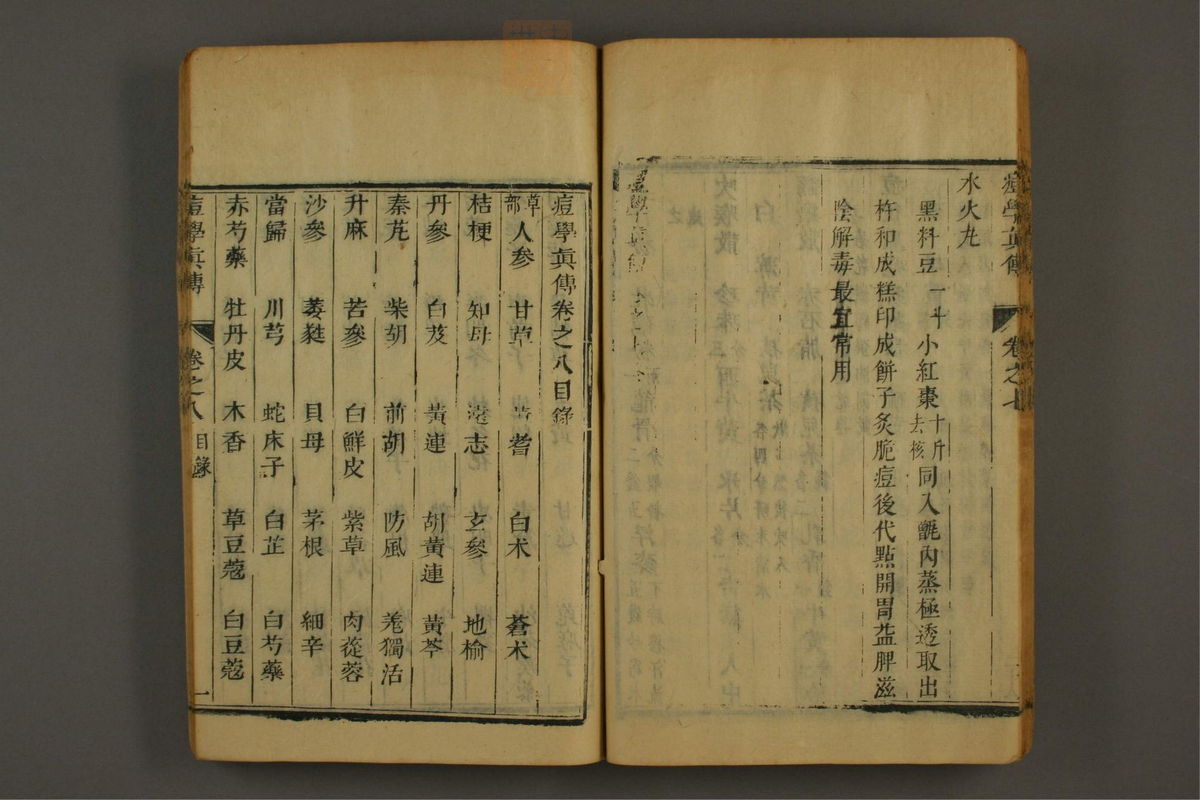 痘學眞傳 卷之七
水火丸
黑料豆一斗 小紅棗十斤去核 同入甑內蒸極透取出
杵和成糕印成餅子炙脆痘後代點開胃益脾滋
陰解毒最宜常用
痘學眞傳卷之八目錄
草部 人參 甘草 黃耆 白朮 蒼朮
桔梗 知母 遠志 玄參 地榆
丹參 白芨 黃連 胡黃連 黃芩
秦艽 柴胡 前胡 防風 羗獨活
升麻 苦參 白鮮皮 紫草 肉蓯蓉
沙參 葳蕤 貝母 茅根 細辛
當歸 川芎 蛇床子 白芷 白芍藥
赤芍藥 牡丹皮 木香 草豆蔻 白豆蔻
痘學眞傳 卷之八 目錄 一